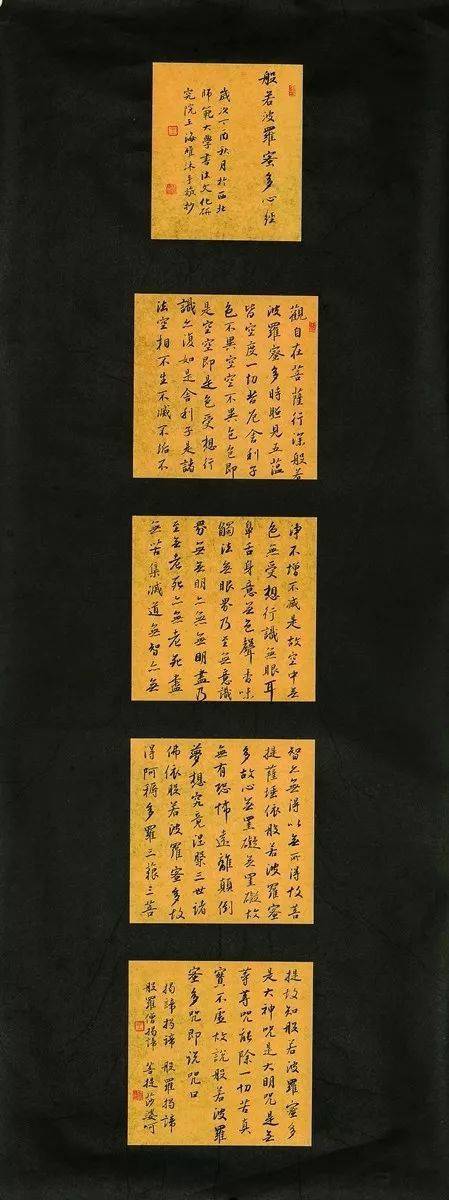 般若波羅蜜多心經
歲次丁酉秋月於西北
師範大學書法文化研
究院王海雁沐手敬抄
觀自在菩薩行深般若
波羅蜜多時照見五蘊
皆空度一切苦厄舍利子
色不異空空不異色色即
是空空即是色受想行
識亦復如是舍利子是諸
法空相不生不滅不垢不
淨不增不減是故空中無
色無受想行識無眼耳
鼻舌身意無色聲香味
觸法無眼界乃至無意識
界無無明亦無無明盡乃
至無老死亦無老死盡
無苦集滅道無智亦無
智亦無得以無所得故菩
提薩埵依般若波羅蜜
多故心無罣礙無罣礙故
無有恐怖遠離顛倒
夢想究竟涅槃三世諸
佛依般若波羅蜜多故
得阿耨多羅三藐三菩
提故知般若波羅蜜多
是大神咒是大明咒是無
等等咒能除一切苦真
實不虛故說般若波羅
蜜多咒即說咒曰
揭諦揭諦 般羅揭諦
般羅僧揭諦 菩提莎婆呵